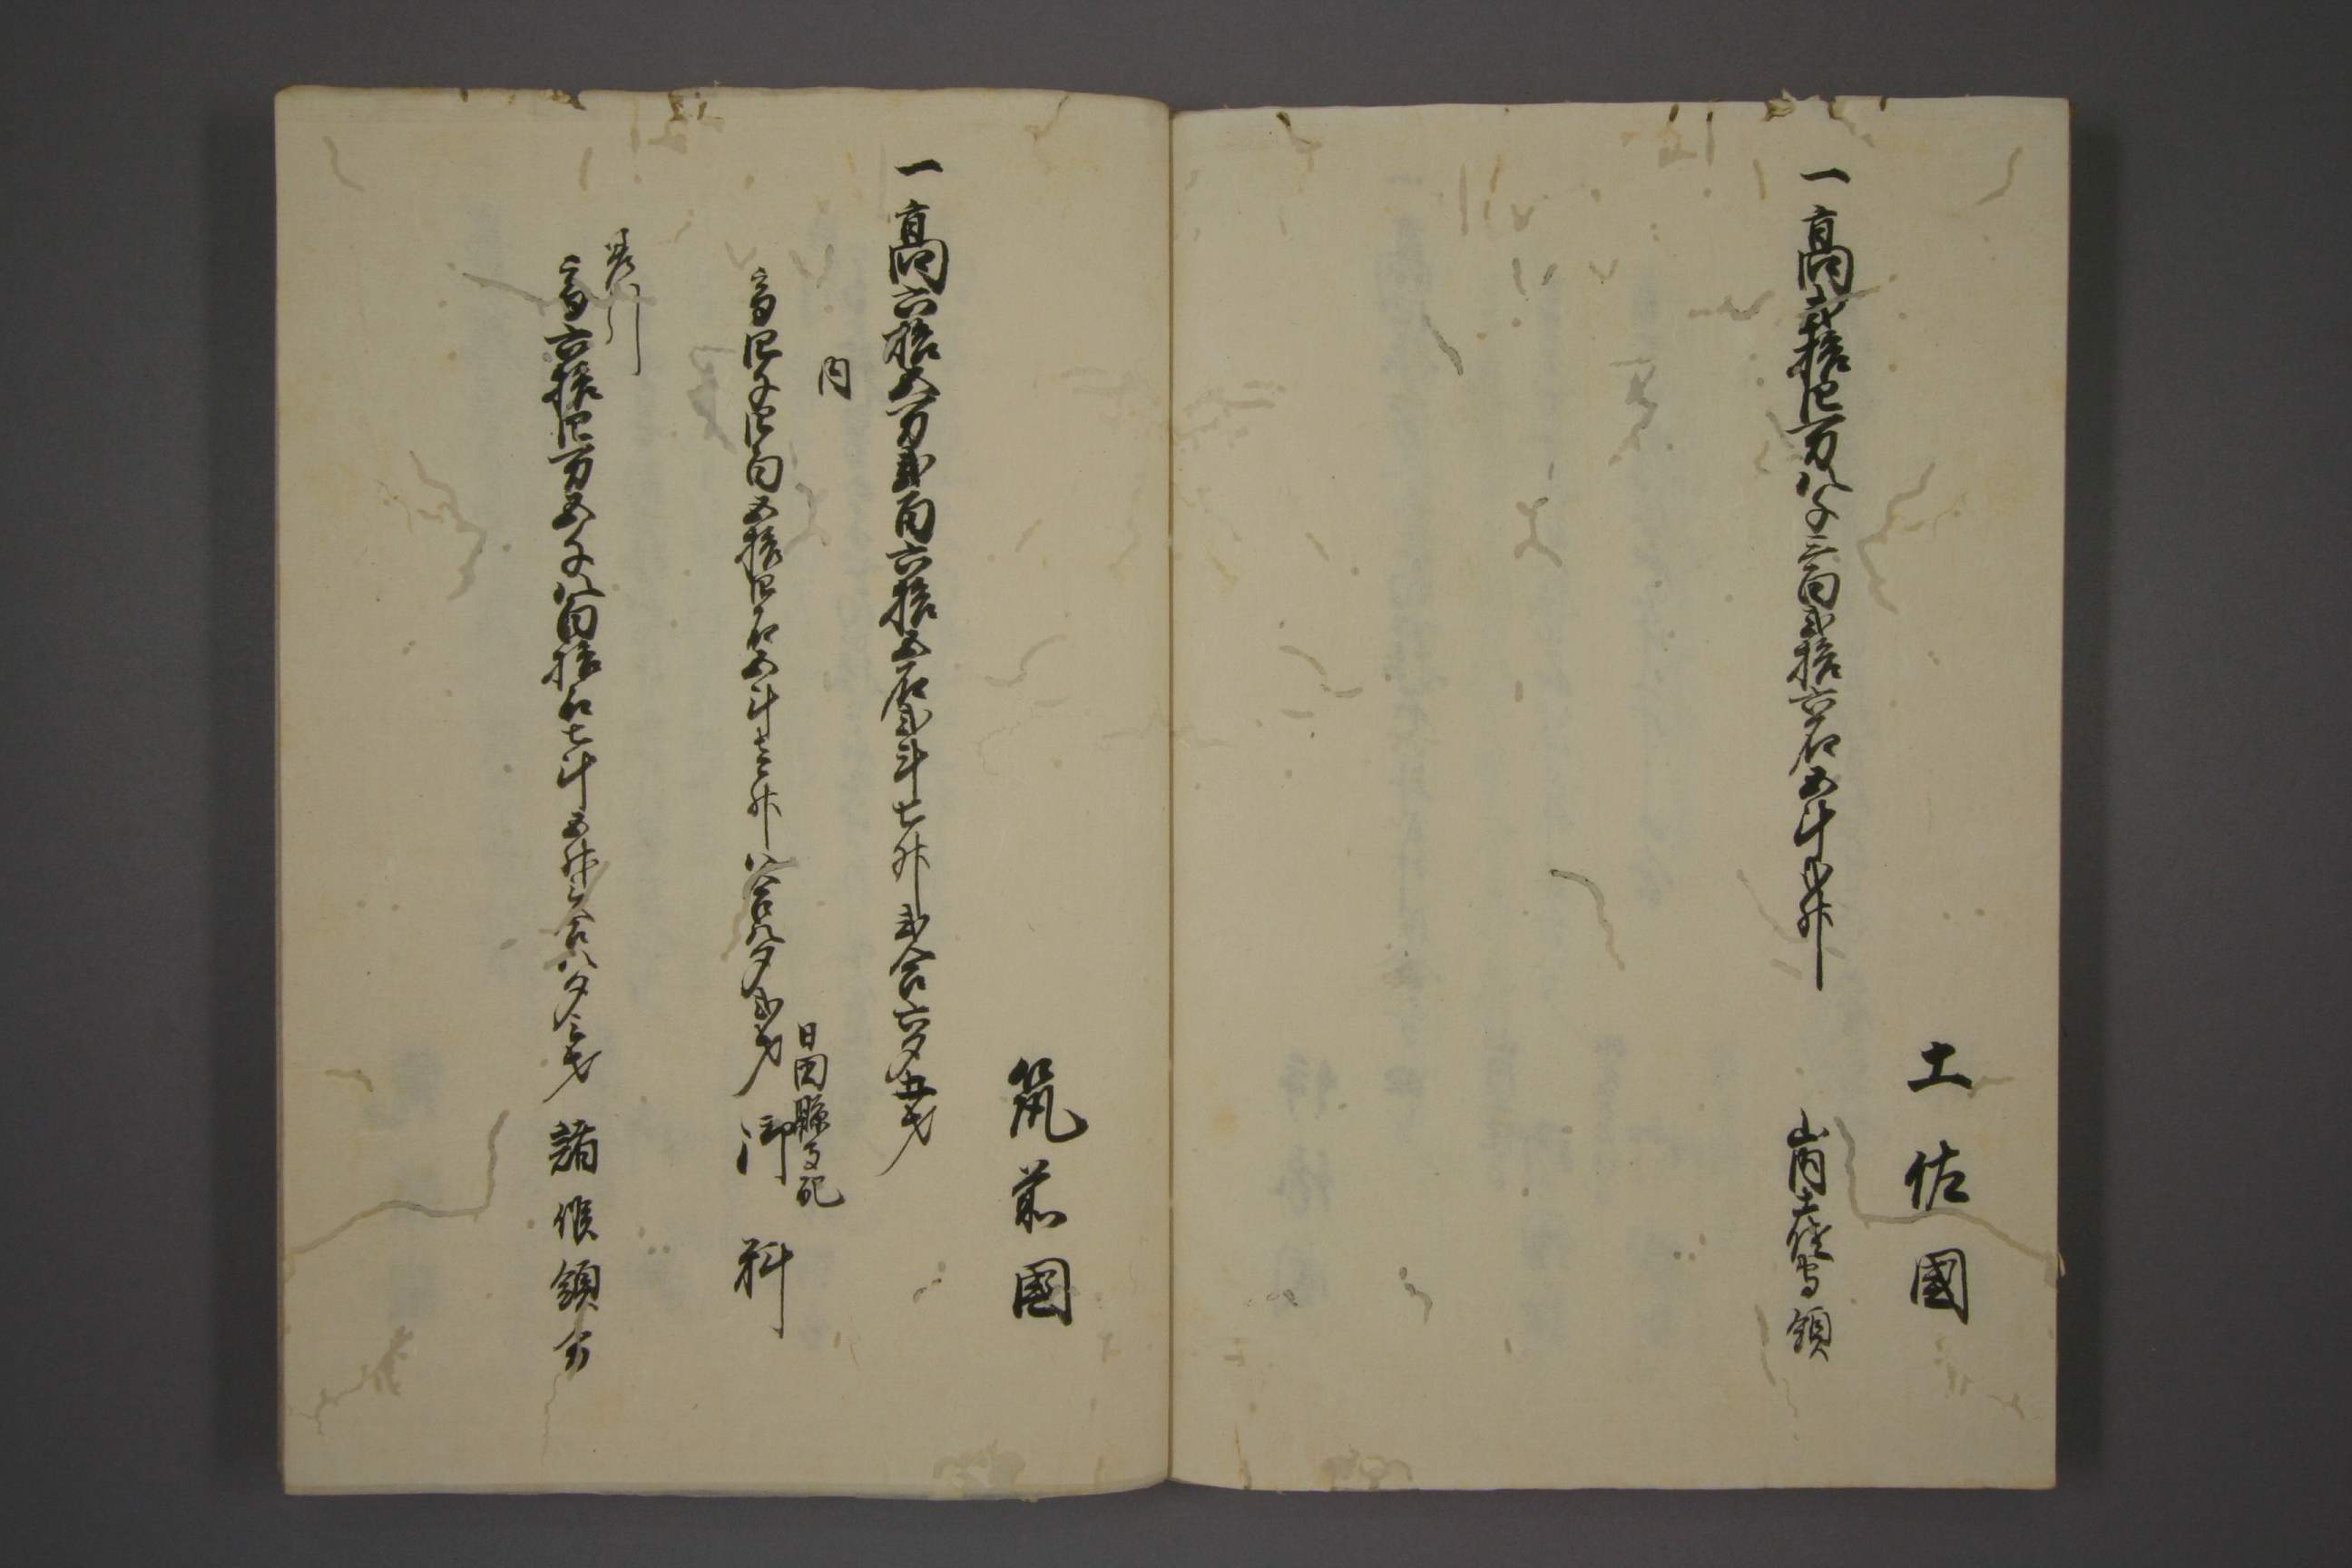 土佐國
一高弐拾四万八千三百弐拾六石五斗弐升
山内土佐守領
筑前國
一高六拾五万弐百六拾五石弐斗七升弐合六夕五才
内
高四千四百五拾四石五斗壱升八合八夕弐才
日田縣支配
御料
差引
高六拾四万五千八百拾石七斗五升三合八夕三才
諸侯領分